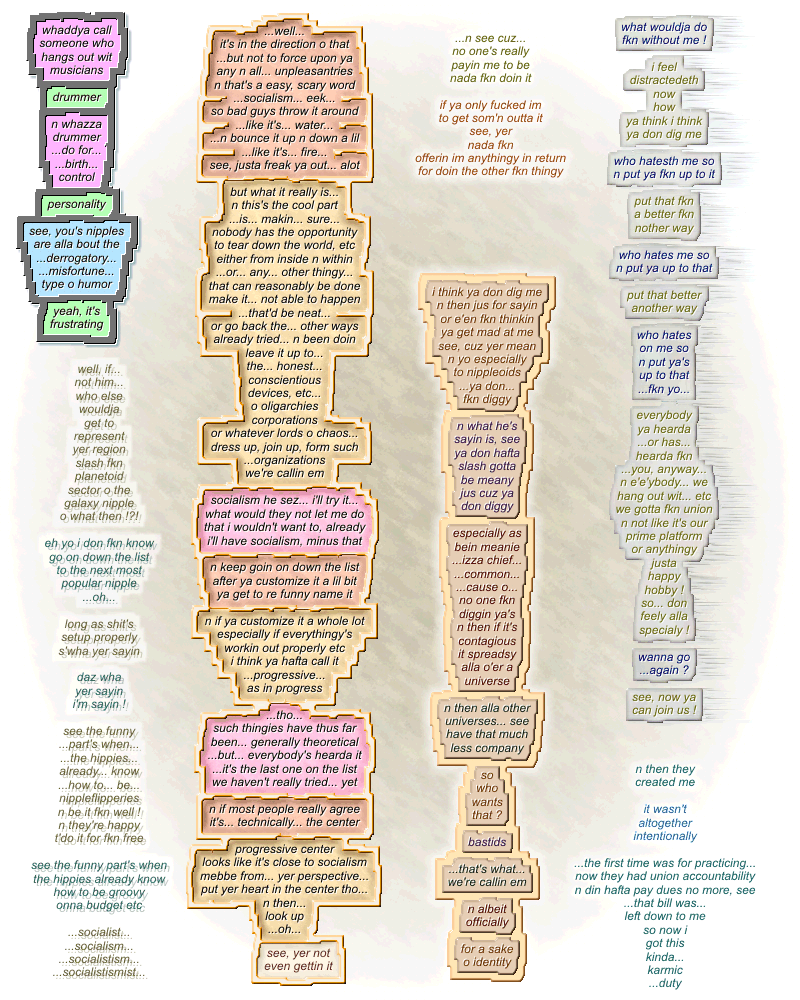 whaddya call
someone who
hangs out wit
musicians
drummer
n whazza
drummer
...do for...
...birth...
control
personality
see, you's nipples
are alla bout the
...derrogatory...
...misfortune...
type o humor
yeah, it's
frustrating
well, if...
not him...
who else
wouldja
get to
represent
yer region
slash fkn
planetoid
sector o the
galaxy nipple
o what then !?!
eh yo i don fkn know
go on down the list
to the next most
popular nipple
...oh...
long as shit's
setup properly
s'wha yer sayin
daz wha
yer sayin
i'm sayin !
see the funny
...part's when...
...the hippies...
already... know
...how to... be...
nippleflipperies
n be it fkn well !
n they're happy
t'do it for fkn free
see the funny part's when
the hippies already know
how to be groovy
onna budget etc
...socialist...
...socialism...
...socialistism...
...socialistismist...
...well...
it's in the direction o that
...but not to force upon ya
any n all... unpleasantries
n that's a easy, scary word
...socialism... eek...
so bad guys throw it around
...like it's... water...
...n bounce it up n down a lil
...like it's... fire...
see, justa freak ya out... alot
but what it really is...
n this's the cool part
...is... makin... sure...
nobody has the opportunity
to tear down the world, etc
either from inside n within
...or... any... other thingy...
that can reasonably be done
make it... not able to happen
...that'd be neat...
or go back the... other ways
already tried... n been doin
leave it up to...
the... honest...
conscientious
devices, etc...
o oligarchies
corporations
or whatever lords o chaos...
dress up, join up, form such
...organizations
we're callin em
socialism he sez... i'll try it...
what would they not let me do
that i wouldn't want to, already
i'll have socialism, minus that
n keep goin on down the list
after ya customize it a lil bit
ya get to re funny name it
n if ya customize it a whole lot
especially if everythingy's
workin out properly etc
i think ya hafta call it
...progressive...
as in progress
...tho...
such thingies have thus far
been... generally theoretical
...but... everybody's hearda it
...it's the last one on the list
we haven't really tried... yet
n if most people really agree
it's... technically... the center
progressive center
looks like it's close to socialism
mebbe from... yer perspective...
put yer heart in the center tho...
n then...
look up
...oh...
see, yer not
even gettin it
...n see cuz...
no one's really
payin me to be
nada fkn doin it
if ya only fucked im
to get som'n outta it
see, yer
nada fkn
offerin im anythingy in return
for doin the other fkn thingy
i think ya don dig me
n then jus for sayin
or e'en fkn thinkin
ya get mad at me
see, cuz yer mean
n yo especially
to nippleoids
...ya don...
fkn diggy
n what he's
sayin is, see
ya don hafta
slash gotta
be meany
jus cuz ya
don diggy
especially as
bein meanie
...izza chief...
...common...
...cause o...
no one fkn
diggin ya's
n then if it's
contagious
it spreadsy
alla o'er a
universe
n then alla other
universes... see
have that much
less company
so
who
wants
that ?
bastids
...that's what...
we're callin em
n albeit
officially
for a sake
o identity
what wouldja do
fkn without me !
i feel
distractedeth
now
how
ya think i think
ya don dig me
who hatesth me so
n put ya fkn up to it
put that fkn
a better fkn
nother way
who hates me so
n put ya up to that
put that better
another way
who hates
on me so
n put ya's
up to that
...fkn yo...
everybody
ya hearda
...or has...
hearda fkn
...you, anyway...
n e'e'ybody... we
hang out wit... etc
we gotta fkn union
n not like it's our
prime platform
or anythingy
justa
happy
hobby !
so... don
feely alla
specialy !
wanna go
...again ?
see, now ya
can join us !
n then they
created me
it wasn't
altogether
intentionally
...the first time was for practicing...
now they had union accountability
n din hafta pay dues no more, see
...that bill was...
left down to me
so now i
got this
kinda...
karmic
...duty